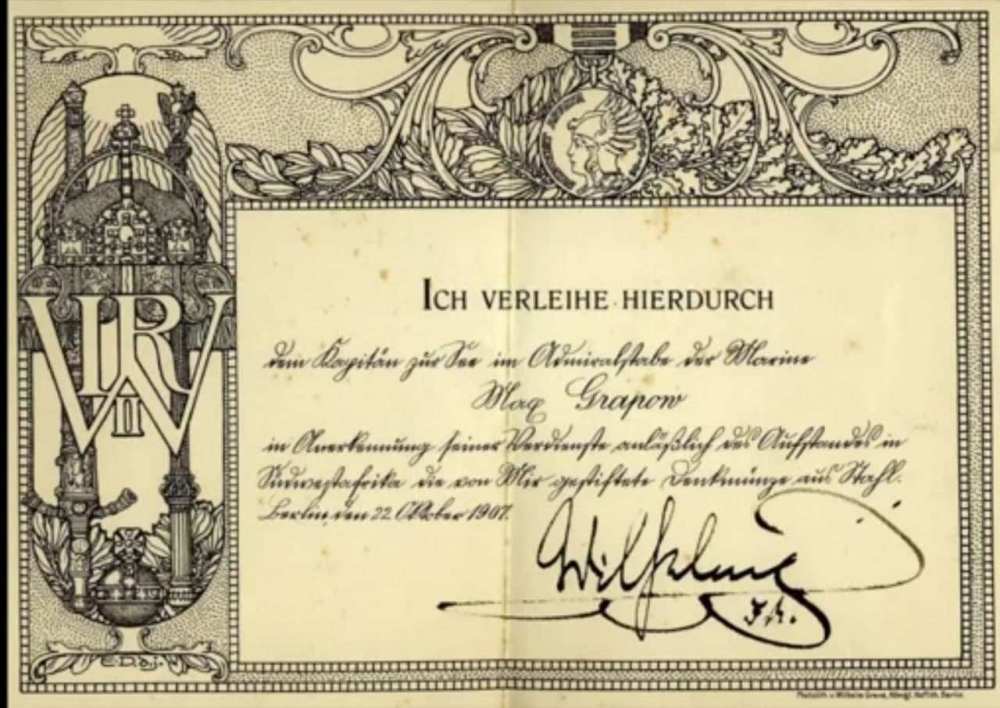 ICH VERLEIHE HIERDURCH
dem Kapitän zur See im Admiralstabe der Marine
Max Grapow
in Anerkennung seiner Verdienste anläßlich des Aufstandes in
Südwestafrika die von Mir gestiftete Denkmünze aus Stahl.
Berlin, den 22 Oktober 1907.
Wilhelm
I.R.
W II IR
E.D.d.J.
Photolith. v. Wilhelm Greve, Königl. Hoflith. Berlin.